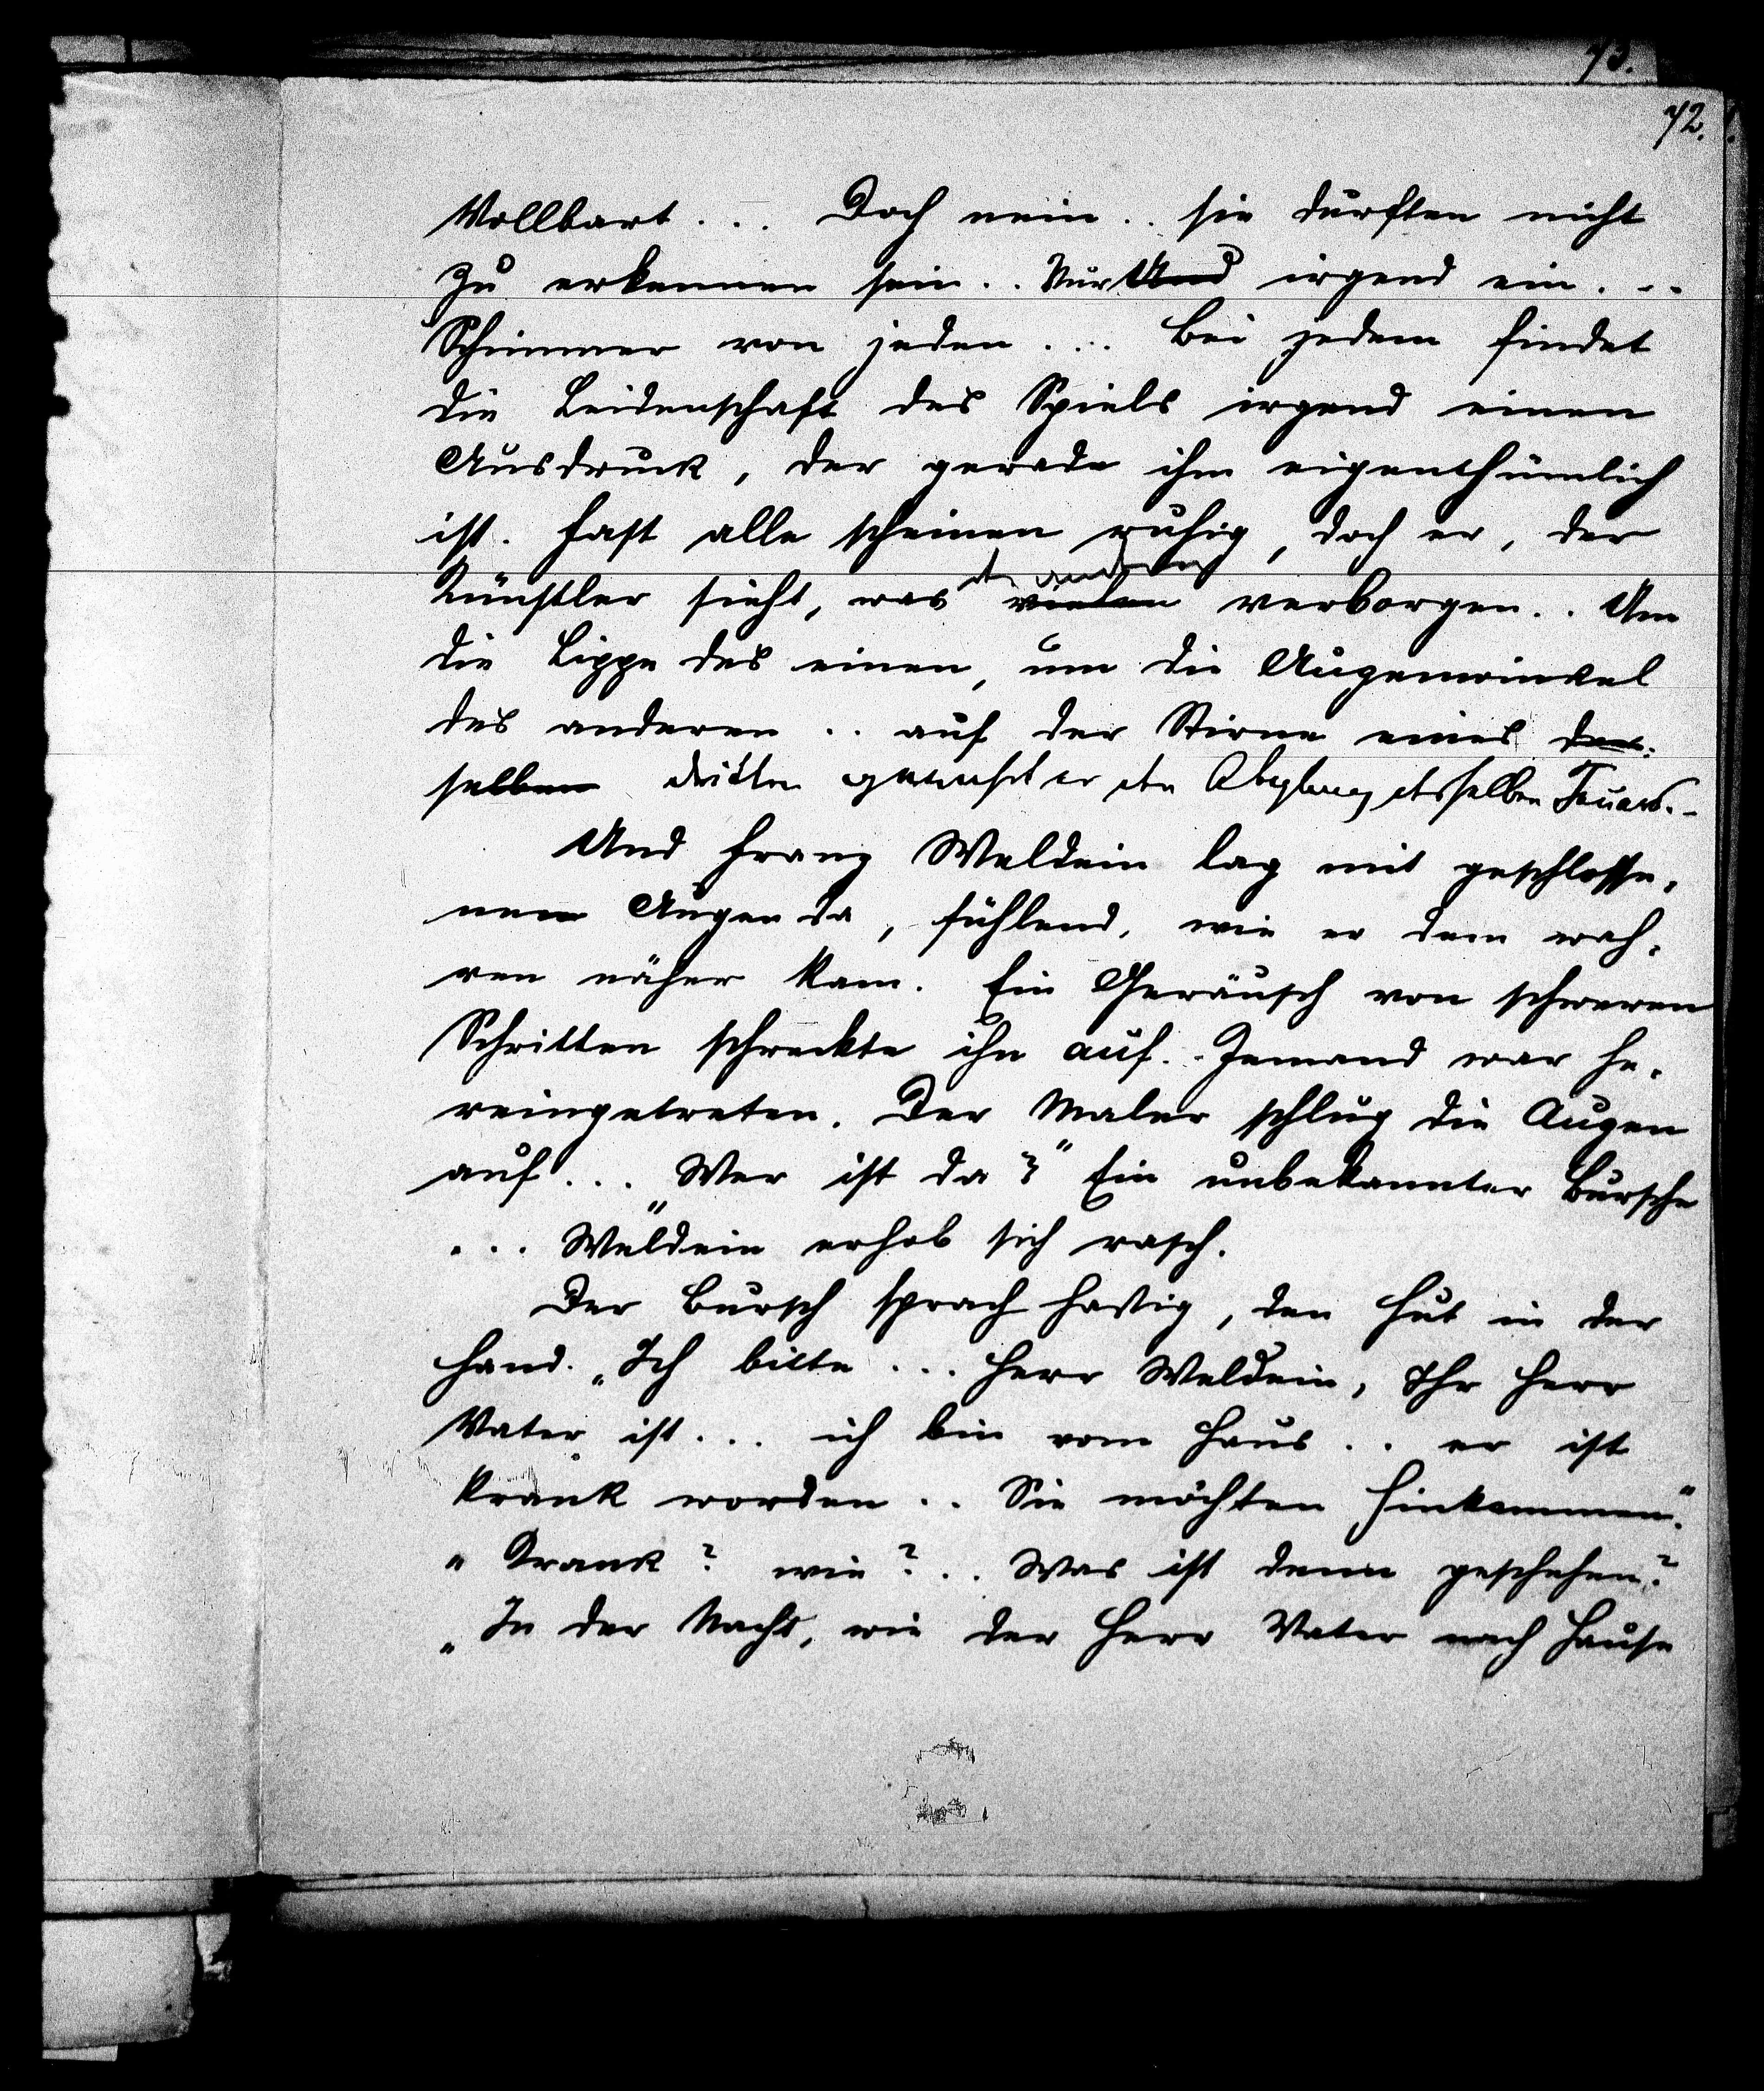 73.
72.
Vollbart... Doch nein.. sie durften nicht
zu erkennen sein.. Nur Und irgend ein...
Schimmer von jeden... Bei jedem findet
die Leidenschaft des Spiels irgend einen
Ausdruck, der gerade ihm eigenthümlich
ist. Fast alle scheinen ruhig, doch er, der
den andern
Künstler sieht, was vielen verborgen.. Um
die Lippe des einen, um die Augenwinkel
des anderen.. auf der Stirne eines des-
selben dritten gewahrt er den Abglanz desselben Feuers.–
Und Franz Weldein lag mit geschlosse-
nen Augen da, fühlend, wie er dem wah-
ren näher kam. Ein Geräusch von schweren
Schritten schreckte ihn auf.. Jemand war he-
reingetreten. Der Maler schlug die Augen
auf... „Wer ist da?“ Ein unbekannter Bursche
... Weldein erhob sich rasch.
Der Bursch sprach hastig, den Hut in der
Hand. „Ich bitte... Herr Weldein, Ihr Herr
Vater ist... ich bin vom Haus.. er ist
krank worden.. Sie möchten hinkommen.“
„Krank? wie?.. Was ist denn geschehen?
„In der Nacht, wie der Herr Vater nach Hause